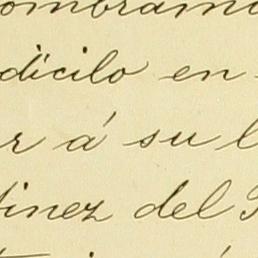 ombram
dicilo en
r á su l
tinez del